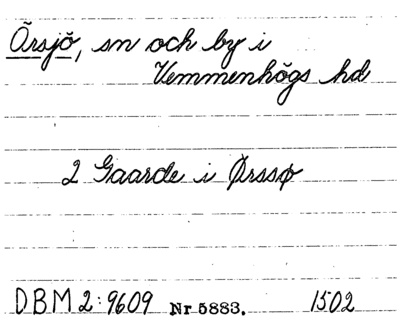 Ärsjö, sn och by i
Vemmenhögs hd
2 Gaarde i Ørssø
DBM 2:9609 Nr 5883. 1502